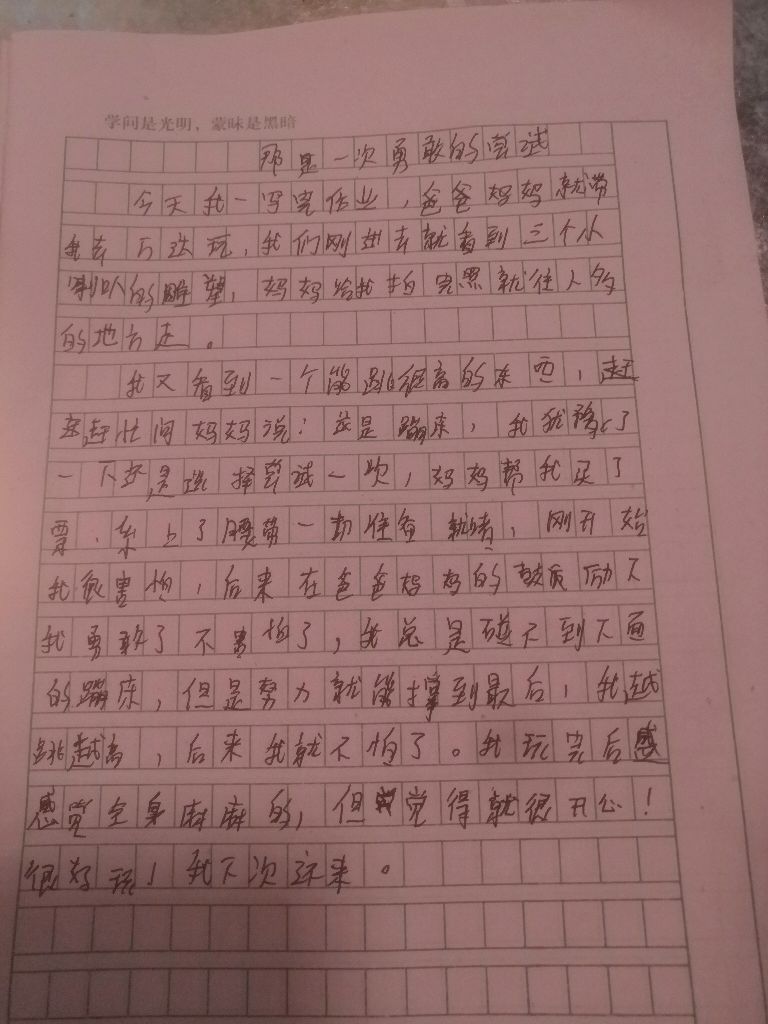 学问是光明，蒙昧是黑暗
那是一次勇敢的尝试
今天我一写完作业，爸爸妈妈就带
我去万达玩，我们刚进去就看到三个小
喇叭的雕塑，妈妈给我拍完照就往人多
的地方走。
我又看到一个能跳很高的东西，赶
赶忙问妈妈说：这是蹦床，我犹豫了
一下还是选择尝试一次，妈妈帮我买了
票．系上了腰带一切准备就绪，刚开始
我很害怕，后来在爸爸妈妈的鼓励下
我勇敢了不害怕了，我总是碰不到下面
的蹦床，但是努力就能撑到最后，我越
跳越高，后来我就不怕了。我玩完后感
感觉全身麻麻的，但觉得就很开心！
很好玩，我下次还来。